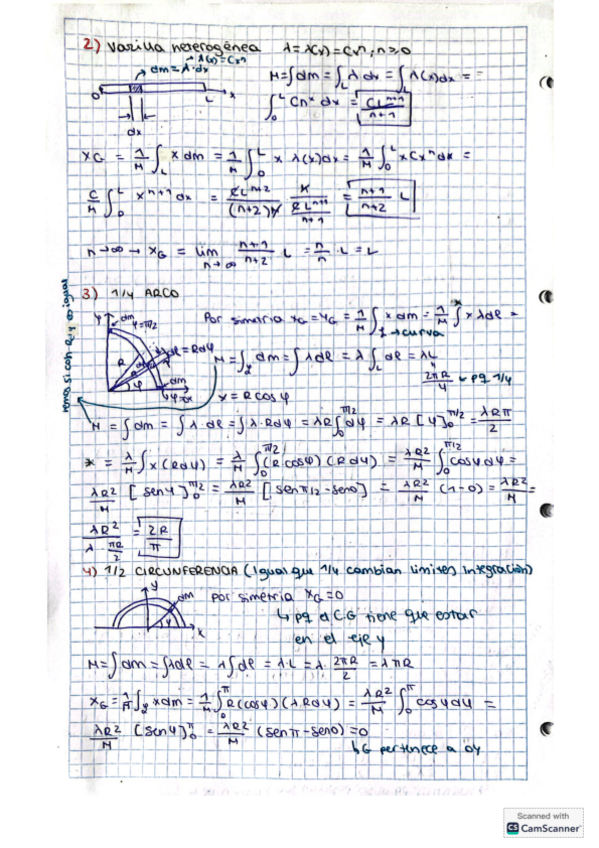 2) Varilla heterogénea λ = λ(x) = Cxⁿ ; n ≥ 0
λ(x) = Cxⁿ
dm = λ·dx
0 L x
dx
M = ∫dm = ∫_L λ dx = ∫_L λ(x)dx =
∫₀ᴸ Cnˣ dx = CLⁿ⁺¹/(n+1)
x_G = 1/M ∫_L x dm = 1/M ∫₀ᴸ x λ(x)dx = 1/M ∫₀ᴸ x Cxⁿ dx =
C/M ∫₀ᴸ xⁿ⁺¹ dx = CLⁿ⁺²/(n+2) · 1/(CLⁿ⁺¹/(n+1)) = (n+1)/(n+2) L
n→∞ → x_G = lim n→∞ (n+1)/(n+2) · L = n/n · L = L
3) 1/4 ARCO
Y dm
φ=π/2
dl = Rdφ
R
φ
dm
Por simetria x_G = y_G = 1/M ∫ x dm = 1/M ∫ x λ dl =
→ curva
M = ∫ dm = ∫ λ dl = λ ∫ dl = λL
2πR/4 → pq 1/4
x = R cos φ
M = ∫ dm = ∫ λ·dl = ∫ λ·Rdφ = λR ∫₀^(π/2) dφ = λR [φ]₀^(π/2) = λRπ/2
x = λ/M ∫ x (Rdφ) = λ/M ∫₀^(π/2) (R cos φ)(R dφ) = λR²/M ∫₀^(π/2) cos φ dφ =
λR²/M [sen φ]₀^(π/2) = λR²/M [sen π/2 - sen 0] = λR²/M (1-0) = λR²/M =
λR²/(λ · πR/2) = 2R/π
4) 1/2 CIRCUNFERENCIA (Igual que 1/4 cambian limites integración)
y
dm
φ
x
Por simetria x_G = 0
↳ pq el C.G tiene que estar
en el eje y
M = ∫ dm = ∫ λ dl = λ ∫ dl = λ·L = λ · 2πR/2 = λπR
x_G = 1/M ∫ x dm = 1/M ∫₀^π R(cos φ)(λRdφ) = λR²/M ∫₀^π cos φ dφ =
λR²/M [sen φ]₀^π = λR²/M (sen π - sen 0) = 0
↳ G pertenece a OY
Scanned with
CS CamScanner